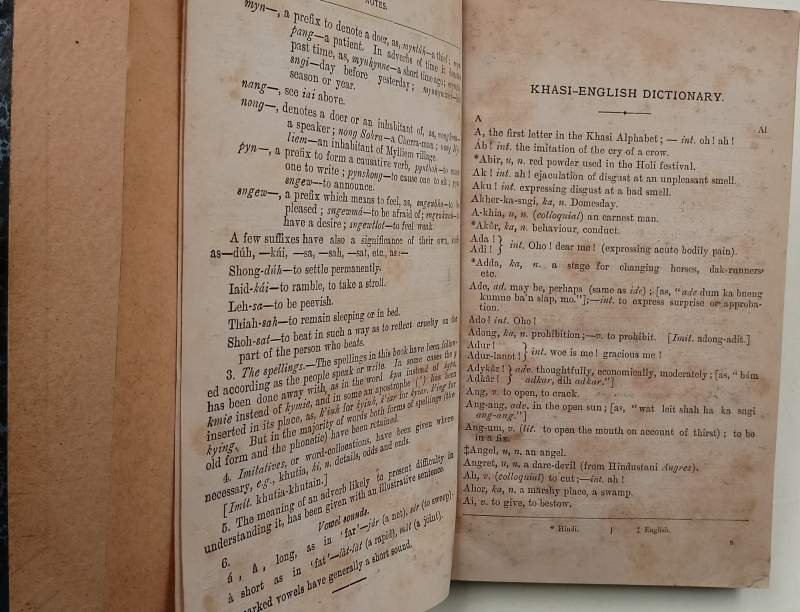 NOTES.
myn—, a prefix to denote a doer, as, myntúh—a thief;
pang—a patient. In adverbs of time it
past time, as, mynkynne—a short time ago;
sngi—day before yesterday;
season or year.
nang—, see iai above.
nong—, denotes a doer or an inhabitant of, as,
a speaker; nong Sohra—a Cherra-man; nong
liem—an inhabitant of Mylliem village.
pyn—, a prefix to form a causative verb,
one to write; pynshong—to cause one to sit;
sngew—to announce.
sngew—, a prefix which means to feel, as,
pleased; sngewmá—to be afraid of;
have a desire; sngewtlot—to feel weak.
A few suffixes have also a significance of their own, such
as—dúh, —kái, —sa, —sah, —sat, etc., as:—
Shong-dúh—to settle permanently.
Iaid-kái—to ramble, to take a stroll.
Leh-sa—to be peevish.
Thiah-sah—to remain sleeping or in bed.
Shoh-sat—to beat in such a way as to reflect cruelty on the
part of the person who beats.
3. The spellings.—The spellings in this book have been follow-
ed according as the people speak or write. In some cases the y
has been done away with, as in the word kpa instead of kypa,
kmie instead of kymie, and in some an apostrophe (') has been
inserted in its place, as,
kying. But in the majority of words both forms of spellings (the
old form and the phonetic) have been retained.
4. Imitatives, or word-collocations, have been given where
necessary, e.g., khutia, ki, n. details, odds and ends.
[Imit. khutia-khutain.]
5. The meaning of an adverb likely to present difficulty in
understanding it, has been given with an illustrative sentence.
6. Vowel sounds.
á, Á, long, as in 'far'—jár (a net), sár (to sweep).
à short as in 'fat'—làt-làt (a rapid), (a joint).
marked vowels have generally a short sound.
KHASI-ENGLISH DICTIONARY.
A Ai
A, the first letter in the Khasi Alphabet; — int. oh! ah!
Áb! int. the imitation of the cry of a crow.
*Abir, u, n. red powder used in the Holi festival.
Ak! int. ah! ejaculation of disgust at an unpleasant smell.
Aku! int. expressing disgust at a bad smell.
Akher-ka-sngi, ka, n. Domesday.
A-khia, u, n. (colloquial) an earnest man.
*Akôr, ka, n. behaviour, conduct.
Ada! } int. Oho! dear me! (expressing acute bodily pain).
Adî! }
*Adda, ka, n. a stage for changing horses, dak-runners
etc.
Ade, ad. may be, perhaps (same as ide); [as, "ade dum ka bneng
kumne ba'n slap, mo."];—int. to express surprise or approba-
tion.
Ado! int. Oho!
Adong, ka, n. prohibition;—v. to prohibit. [Imit. adong-adit.]
Adur! } int. woe is me! gracious me!
Adur-lanot! }
Adykár! } adv. thoughtfully, economically, moderately; [as, "bám
Adkár! } adkar, dih adkar."]
Ang, v. to open, to crack.
Ang-ang, adv. in the open sun; [as, "wat leit shah ha ka sngi
ang-ang."]
Ang-um, v. (lit. to open the mouth on account of thirst); to be
in a fix.
‡Angel, u, n. an angel.
Angret, u, n. a dare-devil (from Hindustani Angrez).
Ah, v. (colloquial) to cut;—int. ah!
Ahor, ka, n. a marshy place, a swamp.
Ai, v. to give, to bestow.
* Hindi. | ‡ English.